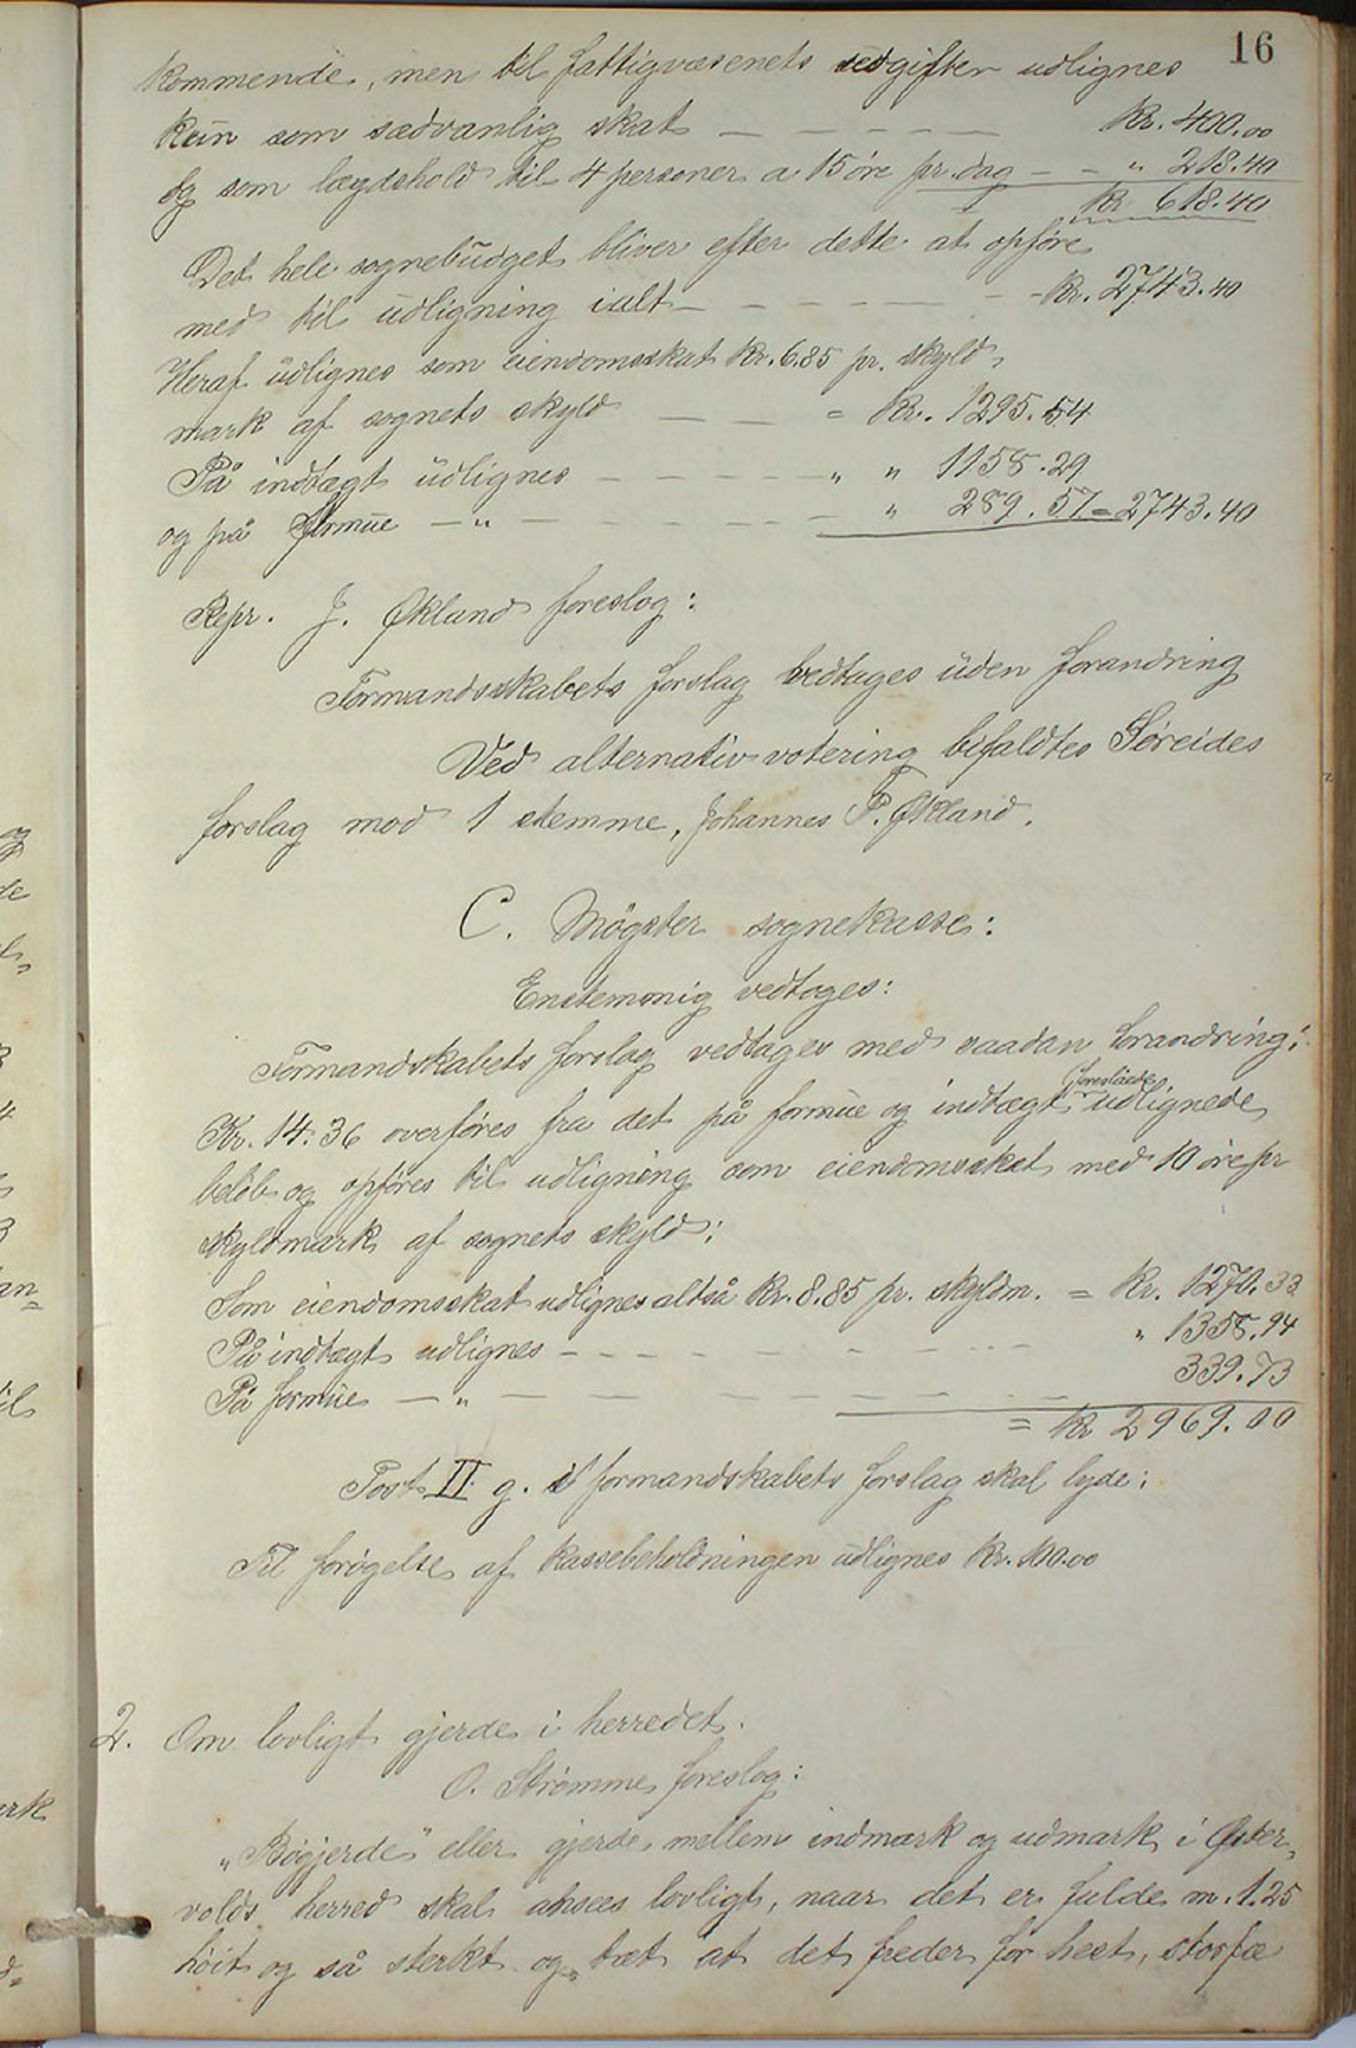 16
kommende, men til fattigvæsenets udgifter udlignes
kun som sædvanlig skat — — — — — Kr. 400.00
og som lægdshold til 4 personer a 15 öre pr. dag — — „ 218.40
Kr. 618.40
Det hele sognebudget bliver efter dette at opføre
med til udligning ialt — — — — — — - Kr. 2743.40
Heraf udlignes som eiendomsskat Kr. 6.85 pr. skyld-
mark af sognets skyld — — — = Kr. 1295.54
På indtægt udlignes — — — — — „ „ 1158.29
og på formue — „ — — — — — — „ 289.57 = 2743.40
Repr. J. Økland foreslog:
Formandsskabets forslag vedtages uden forandring
Ved alternativ votering bifaldtes Søreides
forslag mod 1 stemme, Johannes P. Økland.
C. Møgster sognekasse:
Enstemmig vedtoges:
Formandskabets forslag vedtages med saadan forandring:
foreslåede
Kr. 14.36 overføres fra det på formue og indtægt udlignede
beløb og opføres til udligning som eiendomsskat med 10 öre pr
skyldmark af sognets skyld;
Som eiendomsskat udlignes altså Kr. 8.85 pr. skyldm. = Kr. 1270.33
På indtægt udlignes — — — — — — — „ 1358.94
På formue — „ — — — — — — — 339.73
= Kr 2969.00
Post II g. i formandskabets forslag skal lyde:
Til forøgelse af kassebeholdningen udlignes Kr. 100.00
2. Om lovligt gjerde i herredet.
O. Strømme foreslog:
„Bøgjerde" eller gjerde mellem indmark og udmark i Øster-
volds herred skal ansees lovligt, naar det er fulde m. 1.25
höit og så sterkt og tæt at det freder for hest, storfæ